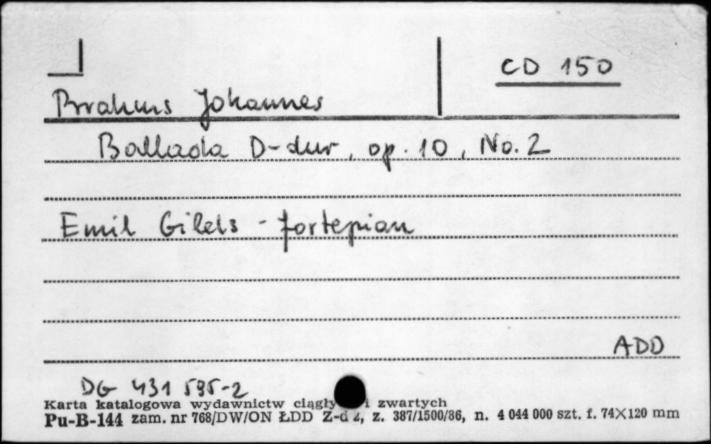 CD 150
Brahms Johannes
Ballada D-dur, op. 10, No. 2
Emil Gilels - fortepian
ADD
DG 431 595-2
Karta katalogowa wydawnictw ciągły i zwartych
Pu-B-144 zam. nr 768/DW/ON ŁDD Z-d 2, z. 387/1500/86, n. 4 044 000 szt. f. 74×120 mm